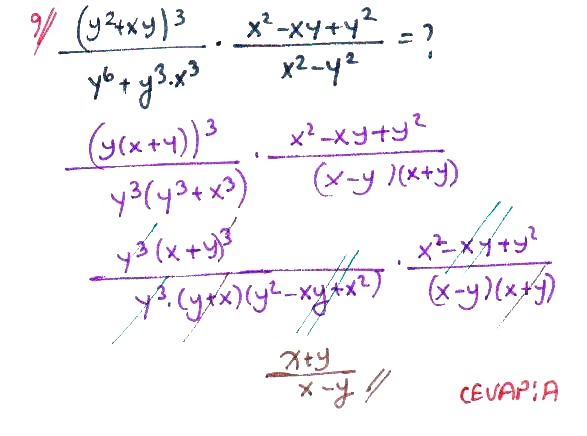 9// (y²+xy)³ / y⁶+y³·x³ · x²-xy+y² / x²-y² = ?
(y(x+y))³ / y³(y³+x³) · x²-xy+y² / (x-y)(x+y)
y³(x+y)³ / y³·(y+x)(y²-xy+x²) · x²-xy+y² / (x-y)(x+y)
x+y / x-y //
CEVAP:A